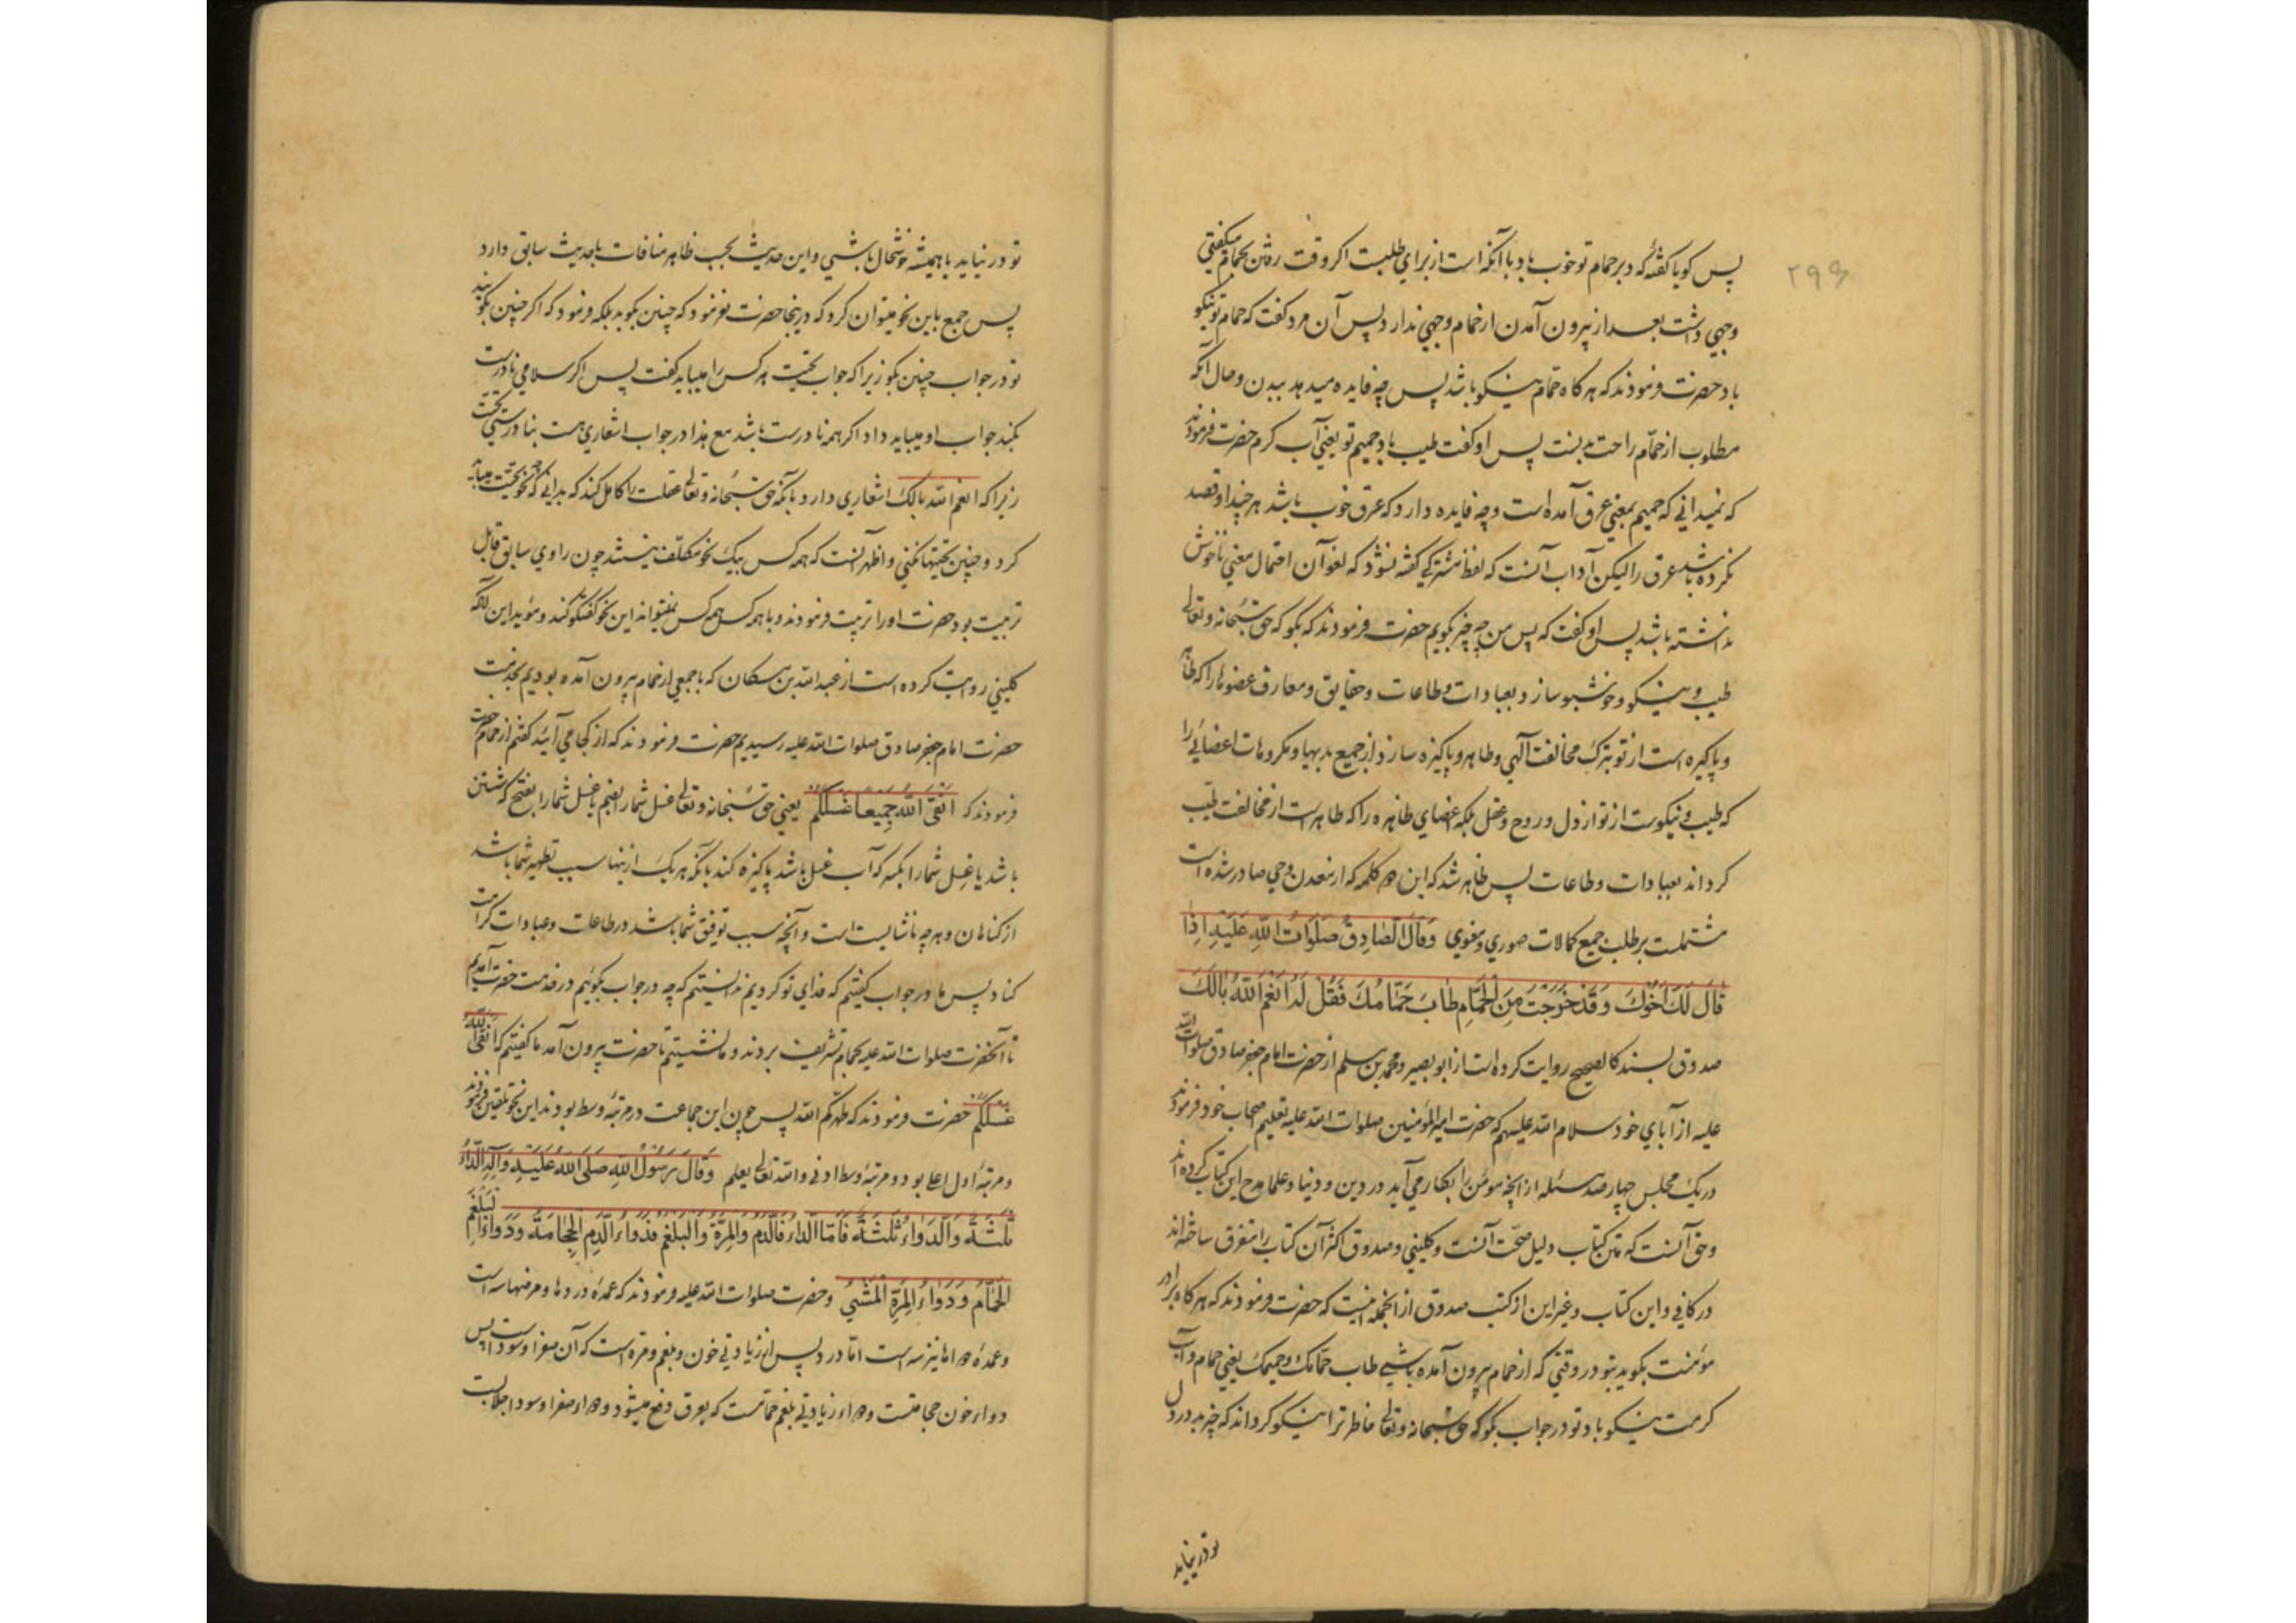 ۲۹۶
پس کویا کفتهٔ که دبر حمام تو خوب باد با آنکه است از برای طلبت اکر وقت رفتن بحمام میکفتی
وجهی داشت بعد از بیرون آمدن از حمام وجهی ندارد پس آن مرد کفت که حمام تو نیکو
باد حضرت فرمودند که هر کاه حمام نیکو باشد پس چه فایده میدهد ببدن و حال آنکه
مطلوب از حمّام راحت بدنست پس او کفت طیب باد حمیم تو یعنی آب کرم حضرت فرمودند
که نمیدانی که حمیم بمعنی عرق آمده است و چه فایده دارد که عرق خوب باشد هر چند او قصد
نکرده باشد عرق را لیکن آداب آنست که لفظ مشترکی کفته نشود که لغو آن احتمال معنی ناخوش
نداشته باشد پس او کفت که پس من چه چیز بکویم حضرت فرمودند که بکو که حق سبحانه و تعالی
طیب و نیکو و خوشبو سازد بعبادات و طاعات و حقایق و معارف عضوها را که طاهر
و پاکیزه است از تو بترک مخالفت آلهی و طاهر و پاکیزه سازد از جمیع بدیها و مکروهات اعضائی را
که طیب و نیکوست از تو از دل و روح و عقل بلکه اعضای ظاهره را که طاهر است از مخالفت طیب
کرداند بعبادات و طاعات پس ظاهر شد که این دو کلمه که از معدن وحی صادر شده است
مشتملست بر طلب جمیع کمالات صوری و معنوی وَقَالَ الصَّادِقُ صَلَوَاتُ اللّٰهِ عَلَیْهِ اِذَا
قَالَ لَكَ اَخُوكَ وَقَدْ خَرَجْتَ مِنَ الْحَمَّامِ طَابَ حَمَّامُكَ فَقُلْ لَهُ اَنْعَمَ اللّٰهُ بَالَكَ
صدوق بسند کالصحیح روایت کرده است از ابو بصیر و محمد بن مسلم از حضرت امام جعفر صادق صلوات الله
علیه از آبای خود سلام الله علیهم که حضرت امیر المؤمنین صلوات الله علیه تعلیم اصحاب خود فرمودند
در یک مجلس چهار صد مسئله از آنچه مومن را بکار می آید در دین و دنیا و علما مدح این کتاب کرده‌اند
و حق آنست که متن کتاب دلیل صحّت آنست و کلینی و صدوق اکثر آن کتاب را متفرق ساخته‌اند
در کافی و این کتاب و غیر این از کتب صدوق از انجمله اینست که حضرت فرمودند که هر کاه برادر
مؤمنت بکوید بتو در وقتی که از حمام بیرون آمده باشی طاب حمّامك و حمیمك یعنی حمام و آب
کرمت نیکو باد تو در جواب بکو که حق سبحانه و تعالی خاطر ترا نیکو کرداند که چیز بد در دل
تو در نیاید
تو در نیاید یا همیشه خوشحال باشی و این حدیث بحسب ظاهر منافات با حدیث سابق دارد
پس جمع باین نحو میتوان کرد که در ینجا حضرت نفرمود که چنین بکوید بلکه فرمود که اکر چنین بکویند
تو در جواب چنین بکو زیرا که جواب تحیّت هر کس را میباید کفت پس اکر سلامی نادرست
بکند جواب او میباید داد اکر همه نادرست باشد مع هذا در جواب اشعاری هست بنا درستی تحیّت
زیرا که انعم الله بالك اشعاری دارد بآنکه حق سبحانه و تعالی عقلت را کامل کند که بدانی که چه نحو تحیّت میباید
کرد و چنین تحیتها نکنی و اظهر آنست که همه کس بیک نحو مکلّف نیستند چون راوی سابق قابل
تربیت بود حضرت او را تربیت فرمودند و با همه کس همه کس نمیتواند این نحو کفتکو کند و مؤید این آنکه
کلینی روایت کرده است از عبدالله بن مسکان که با جمعی از حمام بیرون آمده بودیم بخدمت
حضرت امام جعفر صادق صلوات الله علیه رسیدیم حضرت فرمودند که از کجا می آئید کفتم از حمام حضرت
فرمودند که اَنْقَی اللّٰهُ جَمِیعاً غُسْلَکُمْ یعنی حق سبحانه و تعالی غسل شما را بضم یا غسل شما را بفتح که شستن
باشد یا غِسل شما را بکسر که آب غسل باشد پاکیزه کند بآنکه هر یک از ینها سبب تطهیر شما باشد
از کناهان و هر چه ناشایست است و آنچه سبب توفیق شما باشد در طاعات و عبادات کرامت
کناد پس ما در جواب کفتیم که فدای تو کردیم ندانستیم که چه در جواب بکوئیم در خدمت حضرت آمدیم
تا آنحضرت صلوات الله علیه بحمام تشریف بردند و ما نشستیم تا حضرت بیرون آمد ما کفتیم که انقی الله
غسلکم حضرت فرمودند که طهرکم الله پس چون این جماعت در مرتبهٔ وسط بودند این نحو تلقین فرمودند
و مرتبهٔ اول اعلی بود و مرتبهٔ وسط ادنی والله تعالی یعلم وَقَالَ رَسُولُ اللّٰهِ صَلَّی اللّٰهُ عَلَیْهِ وَآلِهِ الدَّاءُ
ثَلٰثَةٌ وَالدَّوَاءُ ثَلٰثَةٌ فَاَمَّا الدَّاءُ فَالدَّمُ وَالْمِرَّةُ وَالْبَلْغَمُ فَدَوَاءُ الدَّمِ الْحِجَامَةُ وَدَوَاءُ الْبَلْغَمِ
الْحَمَّامُ وَدَوَاءُ الْمِرَّةِ الْمَشْیُ و حضرت صلوات الله علیه فرمودند که عمدهٔ دردها و مرضها سه است
و عمدهٔ دواها نیز سه است امّا درد پس از زیادتی خون و بلغم و مره است که آن صفرا و سوداست پس
دواء خون حجامتست و دواء زیادتی بلغم حمّامست که بعرق دفع میشود و دواء صفرا و سودا جلابست